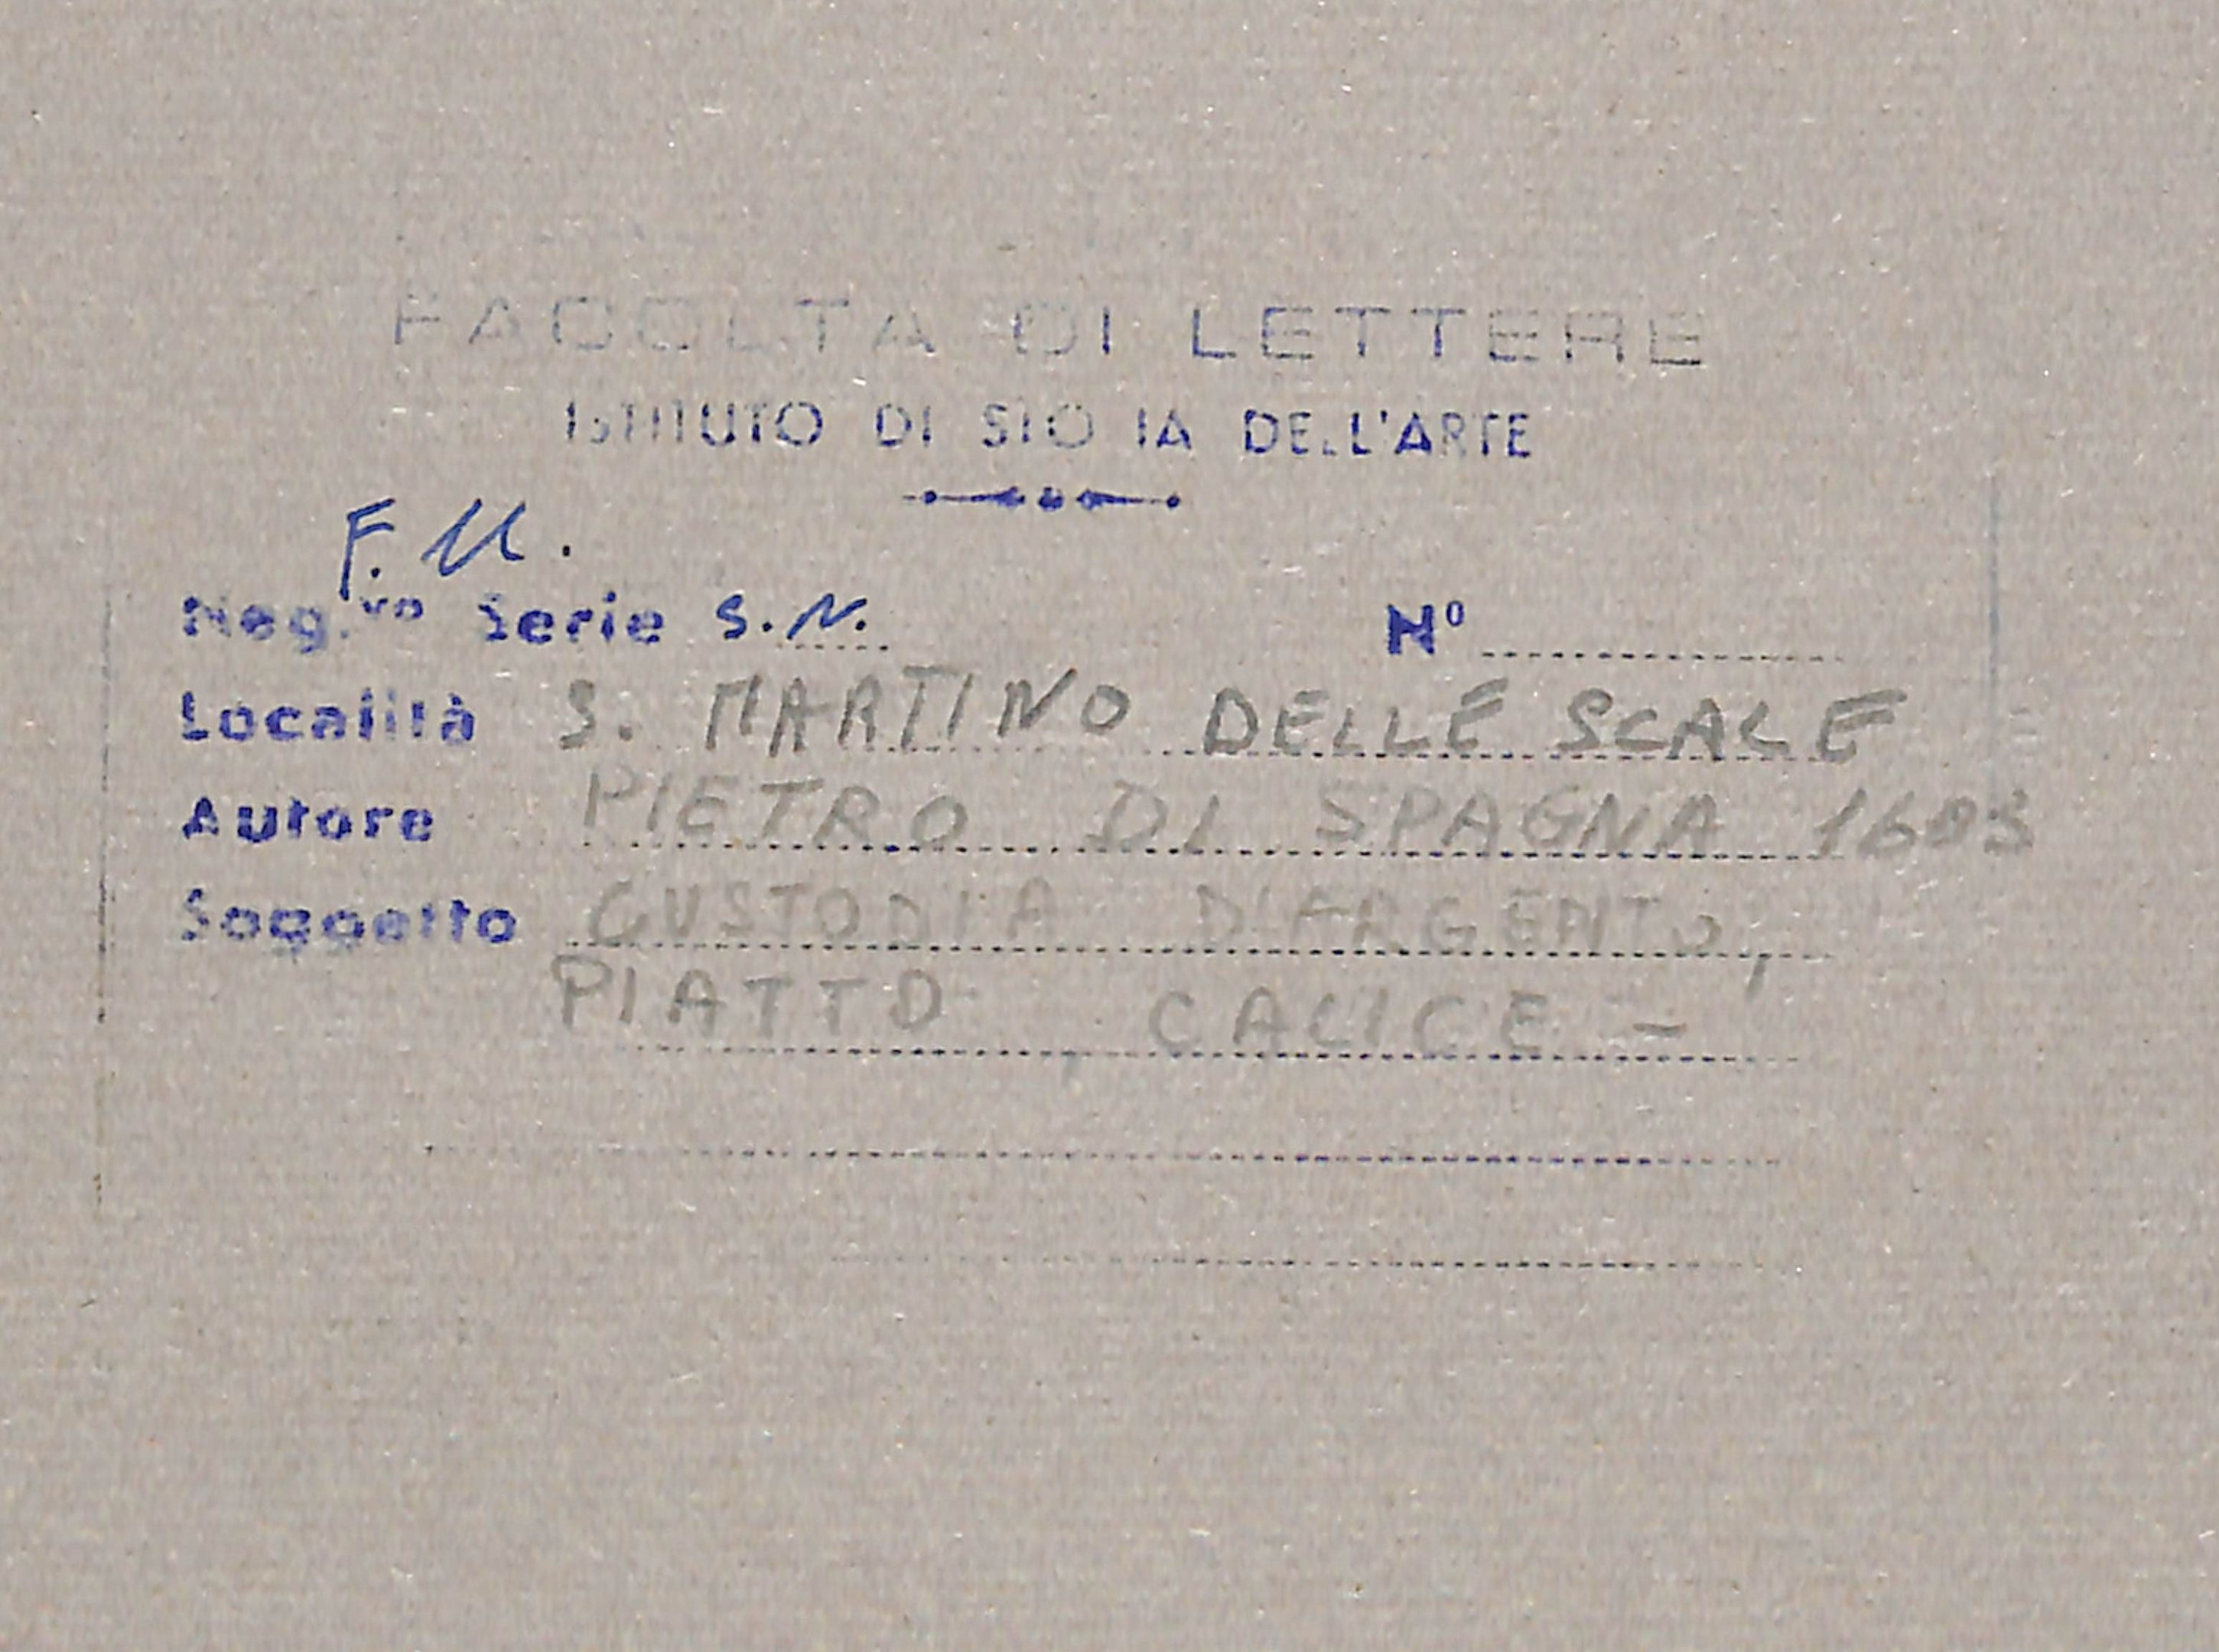 FACOLTA DI LETTERE
ISTITUTO DI STORIA DELL'ARTE
F. M.
Neg.vo Serie S.N. N°
Località S. MARTINO DELLE SCALE
Autore PIETRO DI SPAGNA 1603
Soggetto CUSTODIA D'ARGENTO,
PIATTO, CALICE -